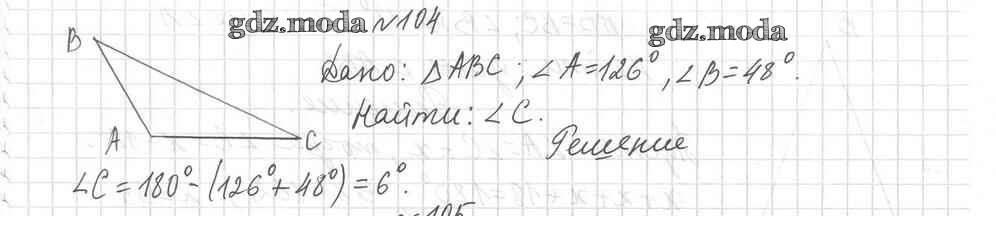 gdz.moda №104
gdz.moda
B
Дано: △ABC; ∠A=126°, ∠B=48°.
Найти: ∠C.
A C
Решение
∠C = 180° - (126° + 48°) = 6°.